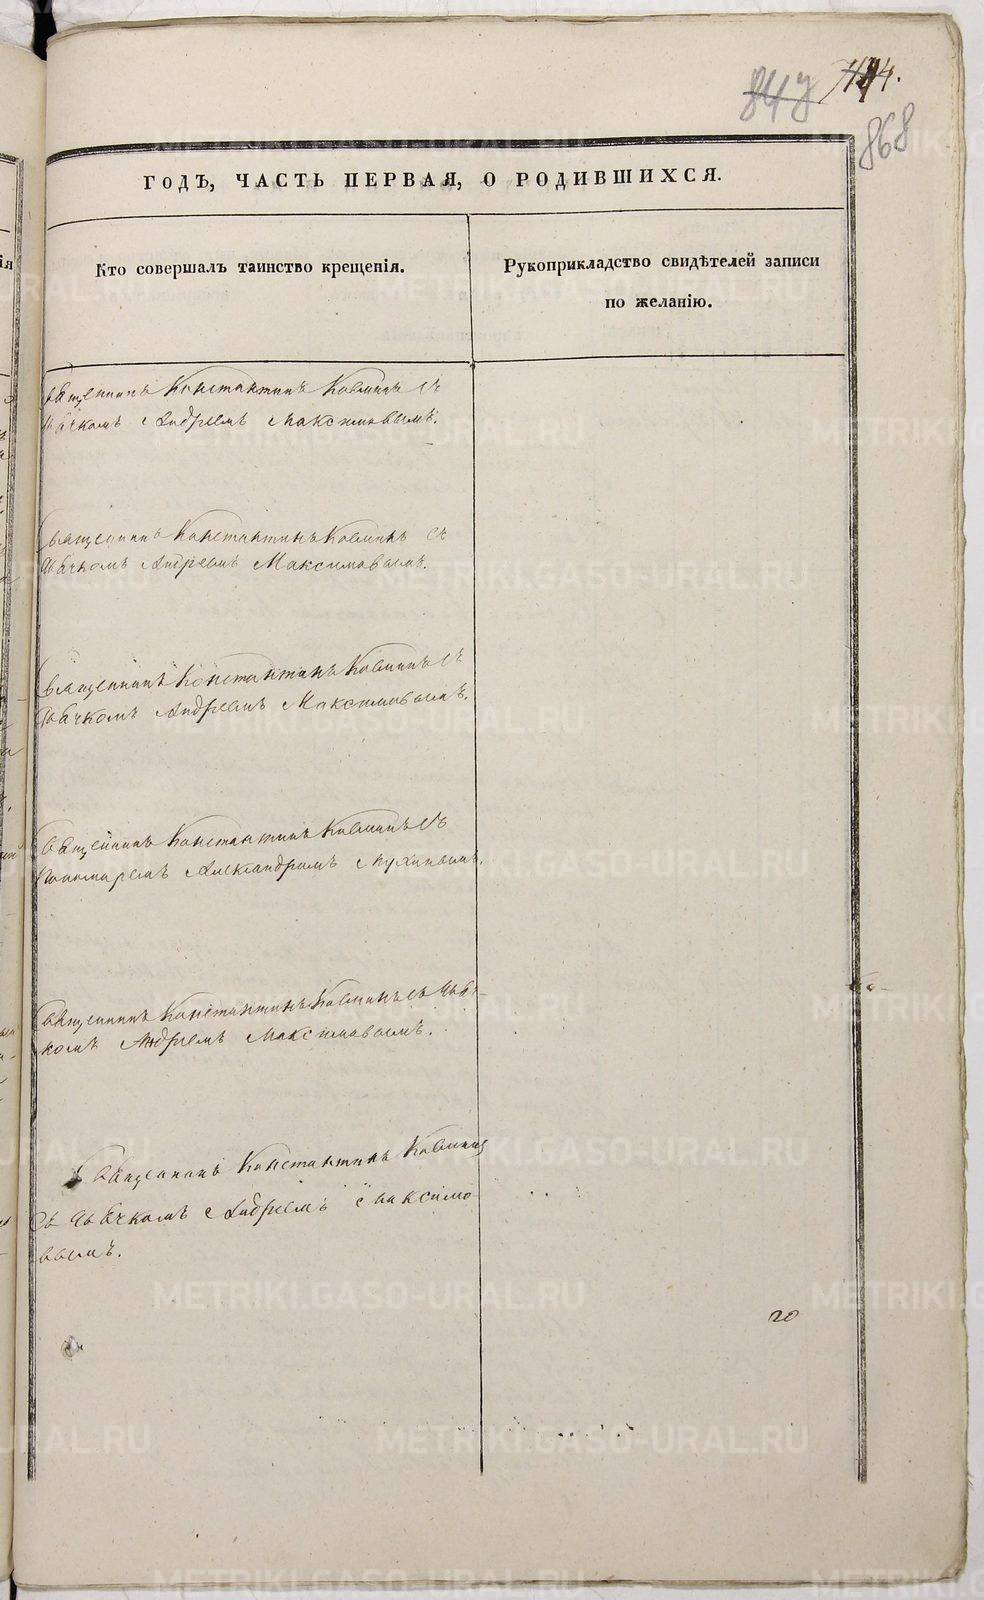 868
ГОДЪ, ЧАСТЬ ПЕРВАЯ, О РОДИВШИХСЯ.
Кто совершалъ таинство крещенія.
Рукоприкладство свидѣтелей записи
по желанію.
Священникъ Константинъ съ
Дьячкомъ Андреемъ Максимовымъ.
Священникъ Константинъ съ
Дьячкомъ Андреемъ Максимовымъ.
Священникъ Константинъ съ
Дьячкомъ Андреемъ Максимовымъ.
Священникъ Константинъ съ
Пономаремъ Александромъ
Священникъ Константинъ съ Дьяч-
комъ Андреемъ Максимовымъ.
Священникъ Константинъ
съ Дьячкомъ Андреемъ Максимо-
вымъ.
20
METRIKI.GASO-URAL.RU